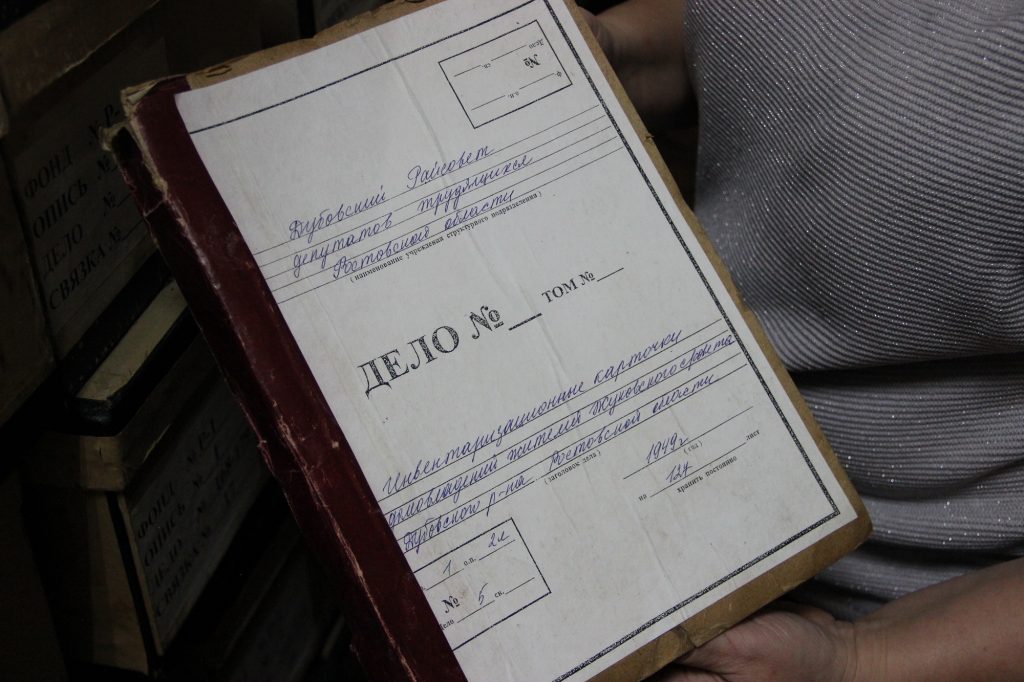 Дело
№ св.
ф оп.
Дубовский Райсовет
депутатов трудящихся
Ростовской области
( наименование учреждения структурного подразделения )
ДЕЛО № ТОМ №
Инвентаризационные карточки
домовладений жителей Жуковского с/совета
Дубовского р-на Ростовской области
( заголовок дела )
1949 г
( год )
на 124 лист
хранить постоянно
1 о.п. 2л
№
Дело 5 св.
ФОНД № Р-1
ОПИСЬ №
ДЕЛО №
СВЯЗКА №
ФОНД № Р-1
ОПИСЬ №
ДЕЛО №
СВЯЗКА №